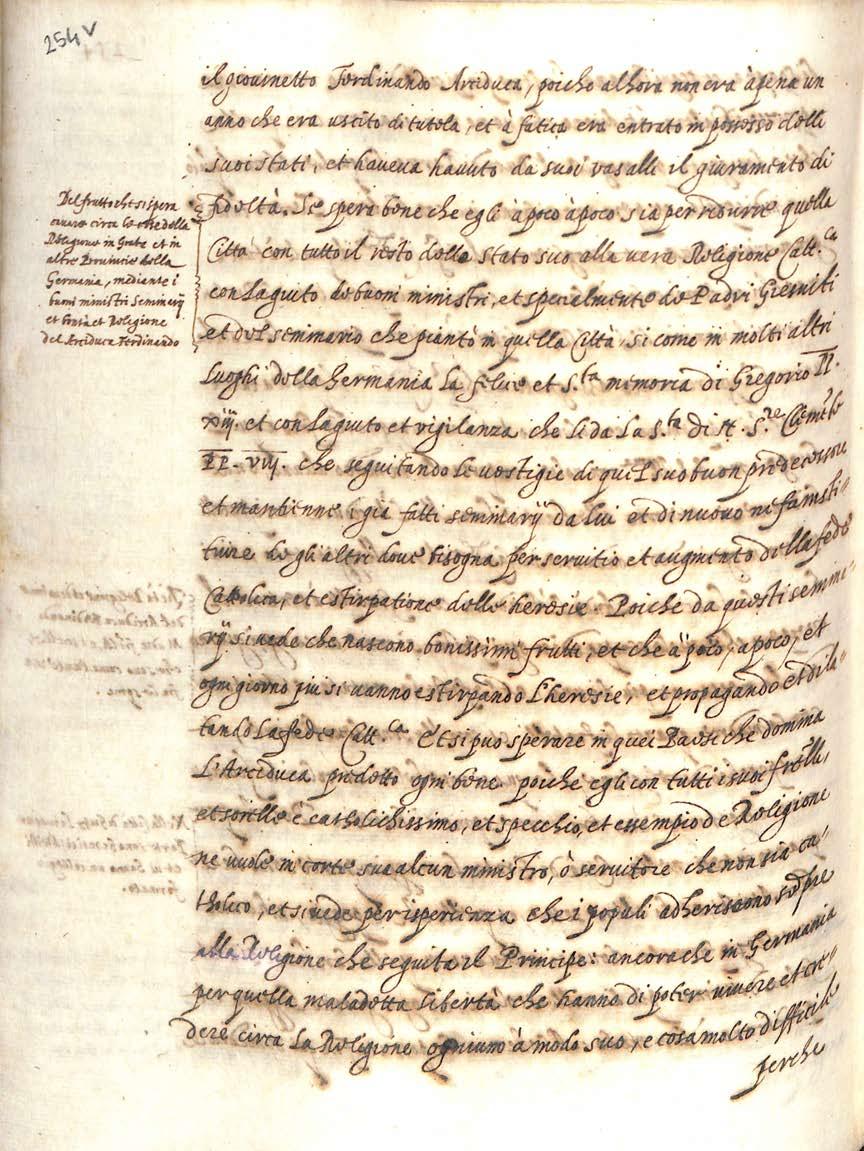 254v
il giovinetto Ferdinando Arciduca, poiche alhora non era àpena un
anno che era uscito di tutela, et à fatica era entrato in possesso delli
suoi stati, et haveva havuto da suoi vasalli il giuramento di
fideltà. Si spera bene che egli à poco à poco sia per ridurre quella
Città con tutto il resto dello stato suo alla vera Religione Catt.ca
con l'aguito de buoni ministri, et spetialmente de Padri Giesuiti
et del seminario che piantò in quella Città, si come in molti altri
Luoghi della Germania la felice et s.ta memoria di Gregorio PP.
xiij. et con l'aguito et vigilanza che li da La S.tà di N. S.re Clemẽte
PP. viij. che seguitando le vestigie di quel suo buon predecessore
et mantiene i già fatti seminarÿ da lui et di nuovo ne fa insti=
tuire de gli altri dove bisogna per servitio et augmento della fede
Cattolica, et estirpatione delle heresie. Poiche da questi semina=
rÿ si vede che nascono bonissimi frutti, et che à poco, a poco, et
ogni giorno piu si vanno estirpando l'heresie, et propagando et dila=
tando La fede Catt.ca Et si puo sperare in quei Paesi che domina
L'Arciduca predetto ogni bene poiche egli con tutti i suoi fr̃elli,
et sorelle è catholichissimo, et specchio, et essempio de Religione
ne vuole in corte sua alcun ministro, ò servitore che non sia ca=
tholico, et si vede per isperienza che i populi adheriscono sẽpre
alla Religione che seguita il Principe: ancora che in Germania
per quella maladetta libertà che hanno di poter vivere et cre=
dere circa La Religione ogniuno à modo suo, e cosa molto difficile
perche
Del frutto che si spera
cavare circa le cose della
Religione in Gratz et in
altre Provincie della
Germania, mediante i
buoni ministri Seminarÿ
et bontà et Religione
del Arciduca Ferdinando